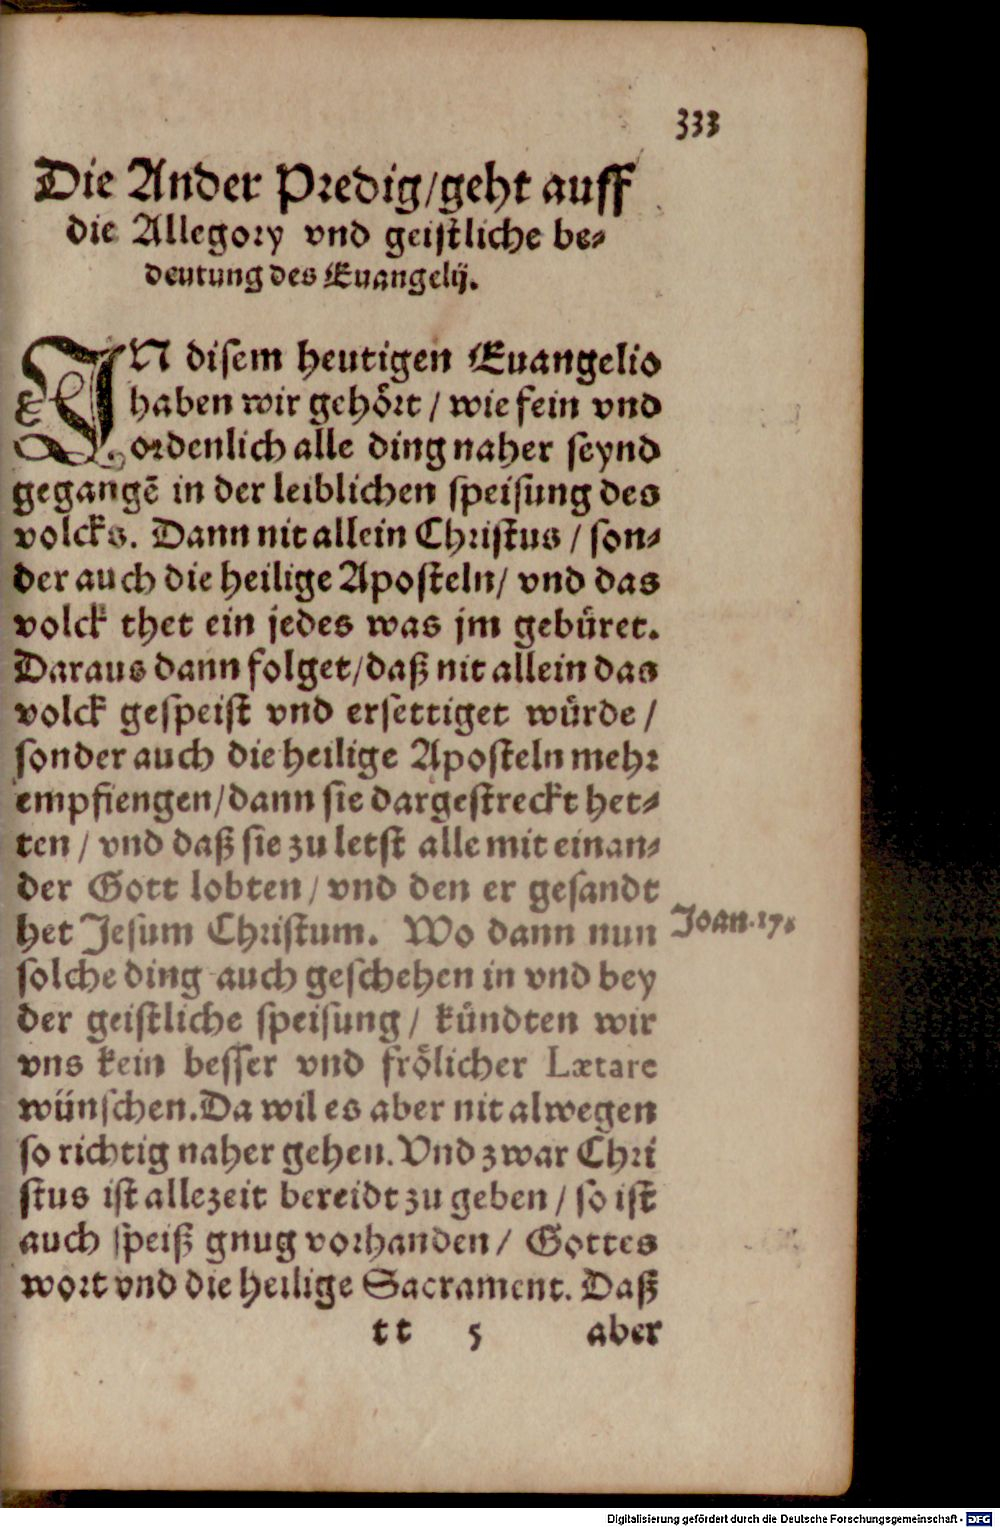 333
Die Ander Predig/geht auff
die Allegory vnd geistliche be⸗
deutung des Euangelij.
IN disem heutigen Euangelio
haben wir gehört / wie fein vnd
ordenlich alle ding naher seynd
gegangē in der leiblichen speisung des
volcks. Dann nit allein Christus / son⸗
der auch die heilige Aposteln/ vnd das
volck thet ein jedes was jm gebüret.
Daraus dann folget/daß nit allein das
volck gespeist vnd ersettiget würde /
sonder auch die heilige Aposteln mehr
empfiengen/dann sie dargestreckt het⸗
ten / vnd daß sie zu letst alle mit einan⸗
der Gott lobten / vnd den er gesandt
het Jesum Christum. Wo dann nun
Joan.17.
solche ding auch geschehen in vnd bey
der geistliche speisung / kündten wir
vns kein besser vnd frölicher Lætare
wünschen. Da wil es aber nit alwegen
so richtig naher gehen. Vnd zwar Chri
stus ist allezeit bereidt zu geben / so ist
auch speiß gnug vorhanden / Gottes
wort vnd die heilige Sacrament. Daß
tt 5 aber
Digitalisierung gefördert durch die Deutsche Forschungsgemeinschaft - DFG